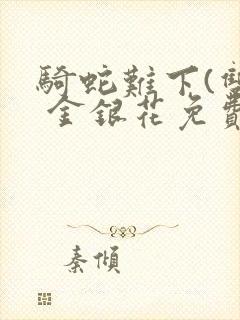 騎蛇難下(雙
金銀花免費
秦傾